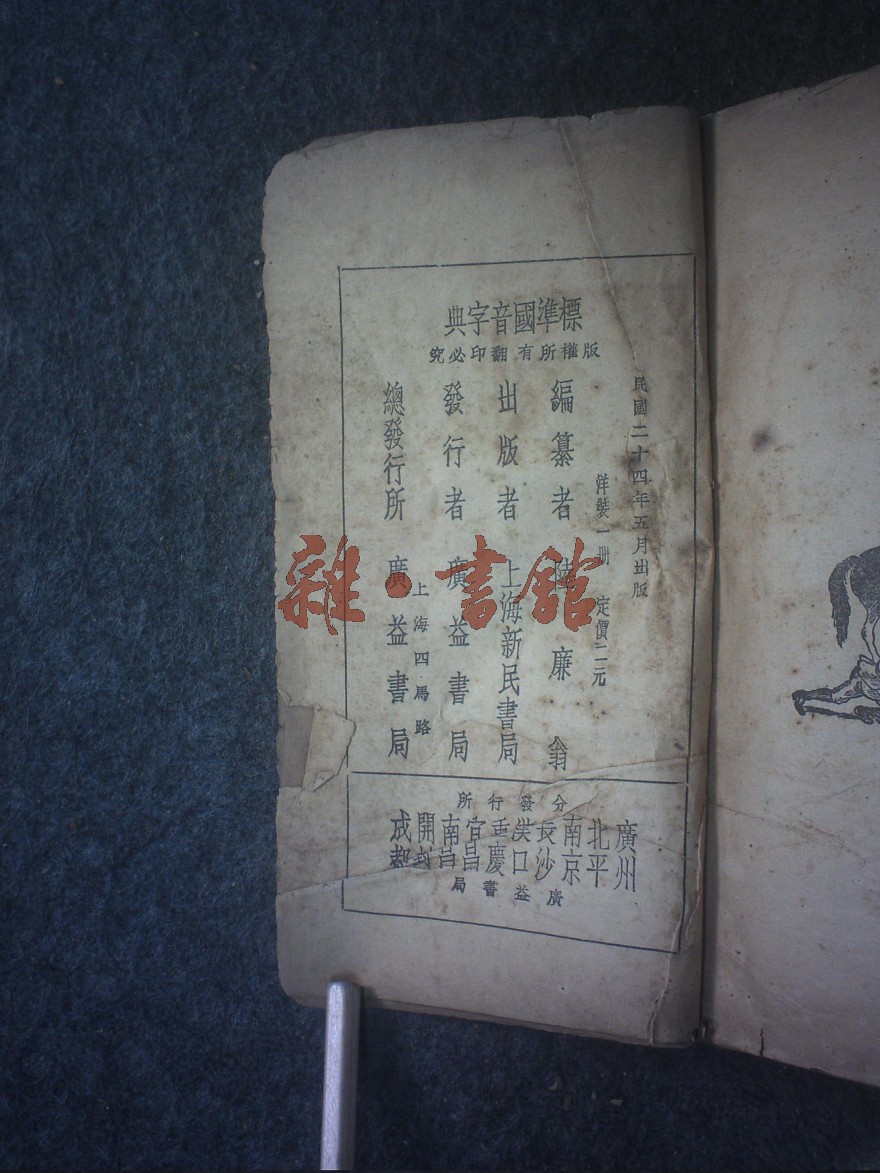 標準國音字典
版權所有翻印必究
民國二十四年五月出版
洋裝一册 定價二元
編纂者 陸廉翁
出版者 上海新民書局
發行者 廣益書局
上海四馬路
總發行所 廣益書局
分發行所
廣州
北平
南京
長沙
漢口
重慶
宜昌
南昌
開封
成都
廣益書局
雜·書館